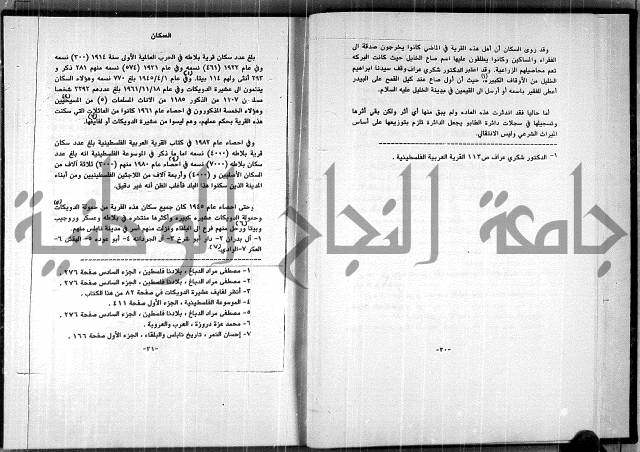 وقد روى السكان أن أهل هذه القرية في الماضي كانوا يخرجون صدقة الى
الفقراء والمساكين وكانوا يطلقون عليها اسم صاع الخليل حيث كانت البركه
تعم محاصيلهم الزراعية. وقد اعتبر الدكتور شكري عراف وقف سيدنا ابراهيم
الخليل من الأوقاف الكبيره(١)، حيث أن أول صاع عند كيل القمح على البيدر
أعطي للفقير باسمه أو أرسل الى القيمين في مدينة الخليل عليه السلام.
أما حاليا فقد اندثرت هذه العاده ولم يبق منها أي أثر ولكن بقي أثرها
وتسجيلها في سجلات دائرة الطابو يجعل الدائرة تلزم بتوزيعها على أساس
الميراث الشرعي وليس الانتقالي.
١- الدكتور شكري عراف ص ١١٣ القرية العربية الفلسطينية.
-٣٠-
السكان
بلغ عدد سكان قرية بلاطه في الحرب العالمية الأولى سنة ١٩١٤ (٣٠٠) نسمه
وفي عام ١٩٢٢ (٤٦١) نسمه وفي عام ١٩٣١ (٥٧٤) نسمه منهم ٢٨١ ذكر و
٢٩٣ أنثى ولهم ١١٤ بيتا،(١) وفي تاريخ ١٩٤٥/٤/١ بلغ ٧٧٠ نسمه وهؤلاء السكان
ينتمون الى عشيرة الدويكات وفي ١٩٦١/١١/١٨ بلغ عددهم ٢٢٩٢ شخصا
١١٠٧ من الذكور ١١٨٥ من الاناث المسلمات (٥) من المسيحيين(٢)
وهؤلاء الخمسة المذكورون في احصاء عام ١٩٦١ كانوا من العائلات التي سكنت
هذه القرية بحكم عملهم، وهم ليسوا من عشيرة الدويكات أو لفايفها.(٣)
وفي احصاء عام ١٩٨٢ في كتاب القرية العربية الفلسطينية انه بلغ عدد
قرية بلاطه (٤٠٠٠) نسمه اما ما ذكر في الموسوعة الفلسطينية انه بلغ عدد
سكان بلاطه (٧٠٠٠) نسمه في احصاء عام ١٩٨٠ منهم (٣٠٠٠)(٤) ثلاثة آلاف من
السكان الأصليين و (٤٠٠٠) وأربعة آلاف من اللاجئين الفلسطينيين ومن أبناء
المدينة الذين سكنوا هذا البلد فأغلب الظن أنه غير دقيق.
وحتى احصاء عام ١٩٤٥ كان جميع سكان هذه القرية من حمولة الدويكات(٥)
وحمولة الدويكات عشيره كبيره وأكثرها منتشره في بلاطه وعسكر وروجيب
وبيتا ورحل منهم فرع الى البلقاء ونزلت منهم أسر في مدينة نابلس منهم.(٦)
١- آل بدران ٢- دار أبو شرخ ٣- آل الجردانه ٤- أبو عوده ٥- البغش ٦-
العكر ٧- الوادي.(٧)
١- مصطفى مراد الدباغ، بلادنا فلسطين، الجزء السادس صفحة ٢٧٦.
٢- مصطفى مراد الدباغ، بلادنا فلسطين، الجزء السادس صفحة ٢٧٦.
٣- أنظر لفايف عشيرة الدويكات في صفحة ٨٢ من هذا الكتاب.
٤- الموسوعة الفلسطينية، الجزء الأول صفحة ٤١١.
٥- مصطفى مراد الدباغ، بلادنا فلسطين، الجزء السادس صفحة ٢٧٦.
٦- محمد عزة دروزة، العرب والعروبة.
٧- إحسان النمر، تاريخ نابلس والبلقاء، الجزء الأول صفحة ١٦٦.
-٣١-
جامعة النجاح الوطنية